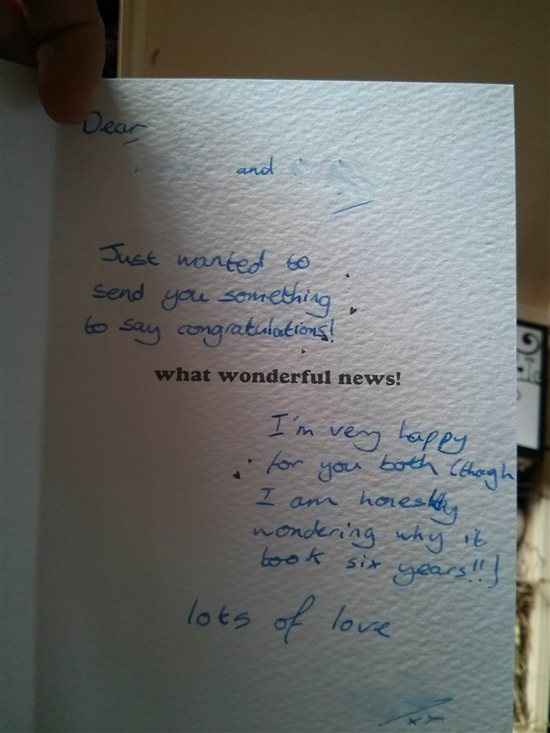 Dear
and
Just wanted to
send you something
to say congratulations!
what wonderful news!
I'm very happy
for you both (though
I am honestly
wondering why it
took six years!!)
lots of love
xx